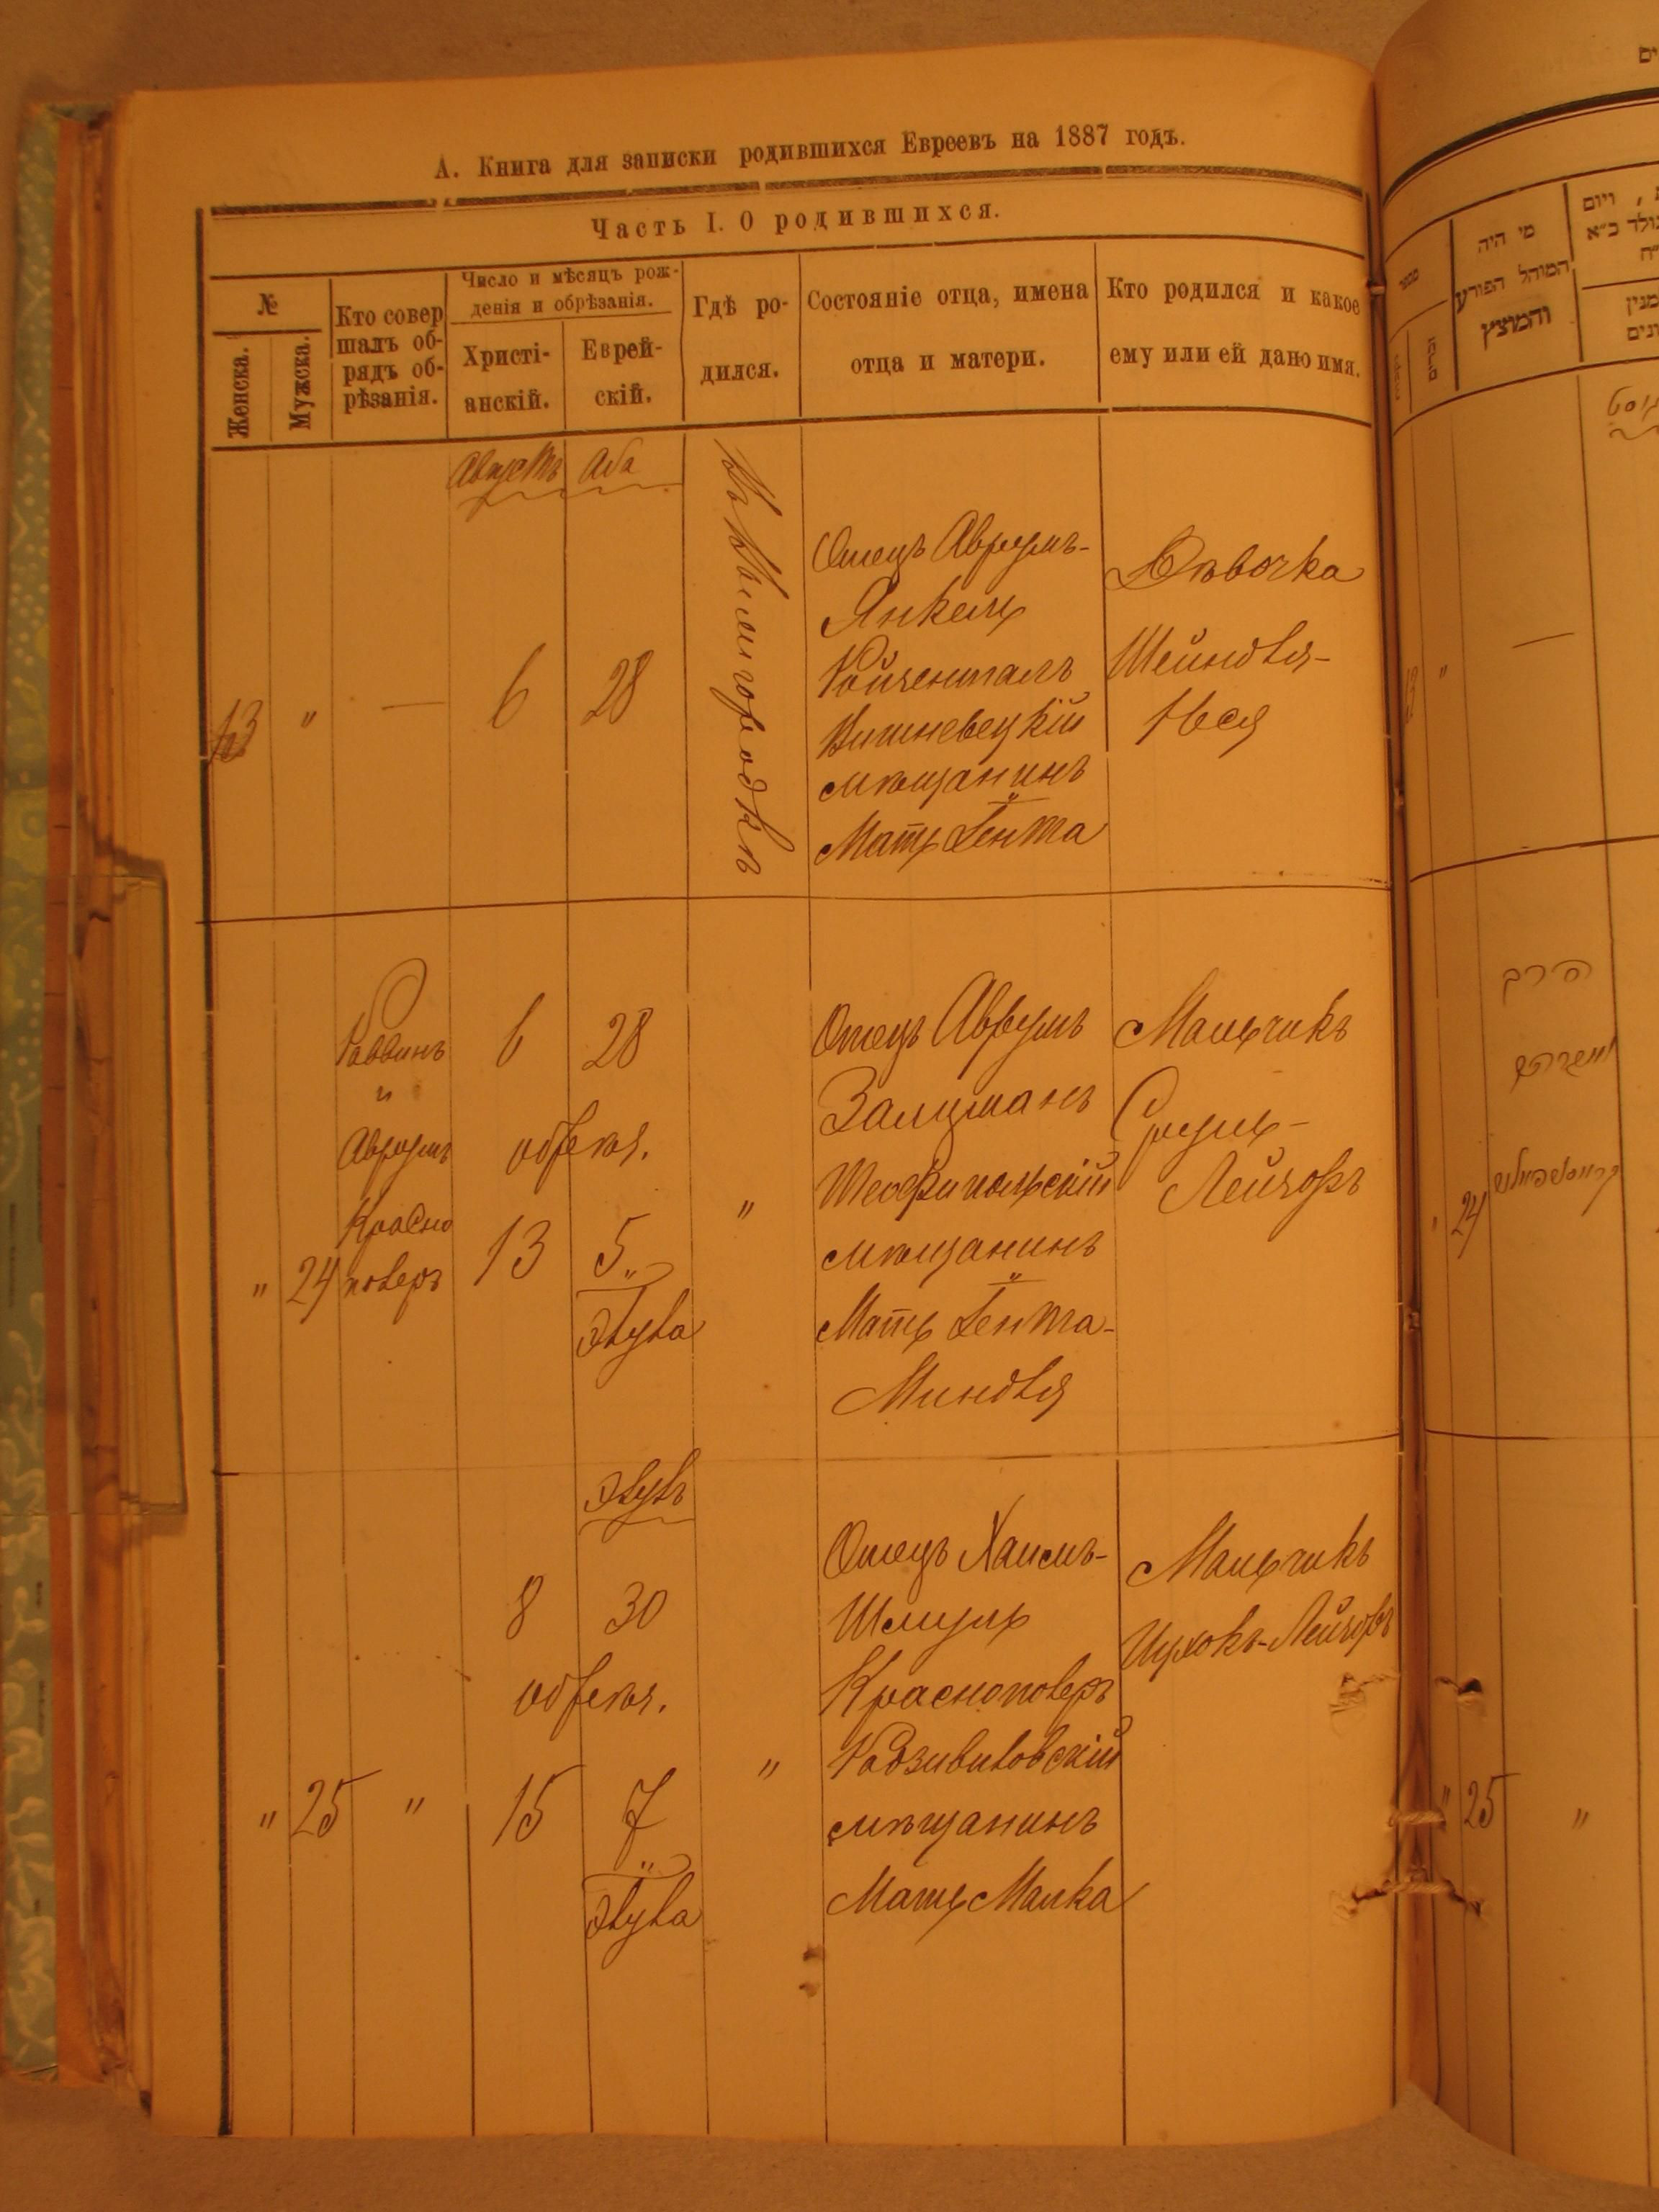 А. Книга для записки родившихся Евреевъ на 1887 годъ.
Часть I. О родившихся.
№
Женска.
Мужска.
Кто совер
шалъ об-
рядъ об-
рѣзанія.
Число и мѣсяцъ рож-
денія и обрѣзанія.
Христі-
анскій.
Еврей-
скій.
Гдѣ ро-
дился.
Состояніе отца, имена
отца и матери.
Кто родился и какое
ему или ей дано имя.
Августъ
Аба
13
"
—
6
28
Отецъ Аврумъ-
Янкель
Ройзенталъ
Вишневецкій
мѣщанинъ
Мать Гентя
Дѣвочка
Шейндля-
Неся
"
24
Раввинъ
и
Аврумъ
Красно
поверъ
6
28
обрезн.
13
5
Элула
"
Отецъ Аврумъ
Зальцманъ
Теофипольскій
мѣщанинъ
Мать Гентя-
Миндля
Мальчикъ
Сруль-
Лейзоръ
Элулъ
"
25
"
8
30
обрезн.
15
7
Элула
"
Отецъ Хаимъ-
Шмуль
Красноповеръ
Радзивиловскій
мѣщанинъ
Мать Малка
Мальчикъ
Ицхокъ-Лейзоръ
מי היה
המוהל הפורע
והמוצץ
13
"
—
הרב
24
"
25
"